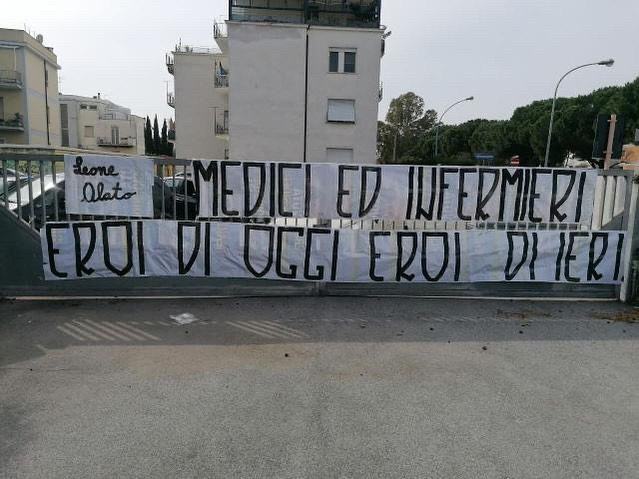 Leone
Alato
MEDICI ED INFERMIERI
EROI DI OGGI EROI DI IERI